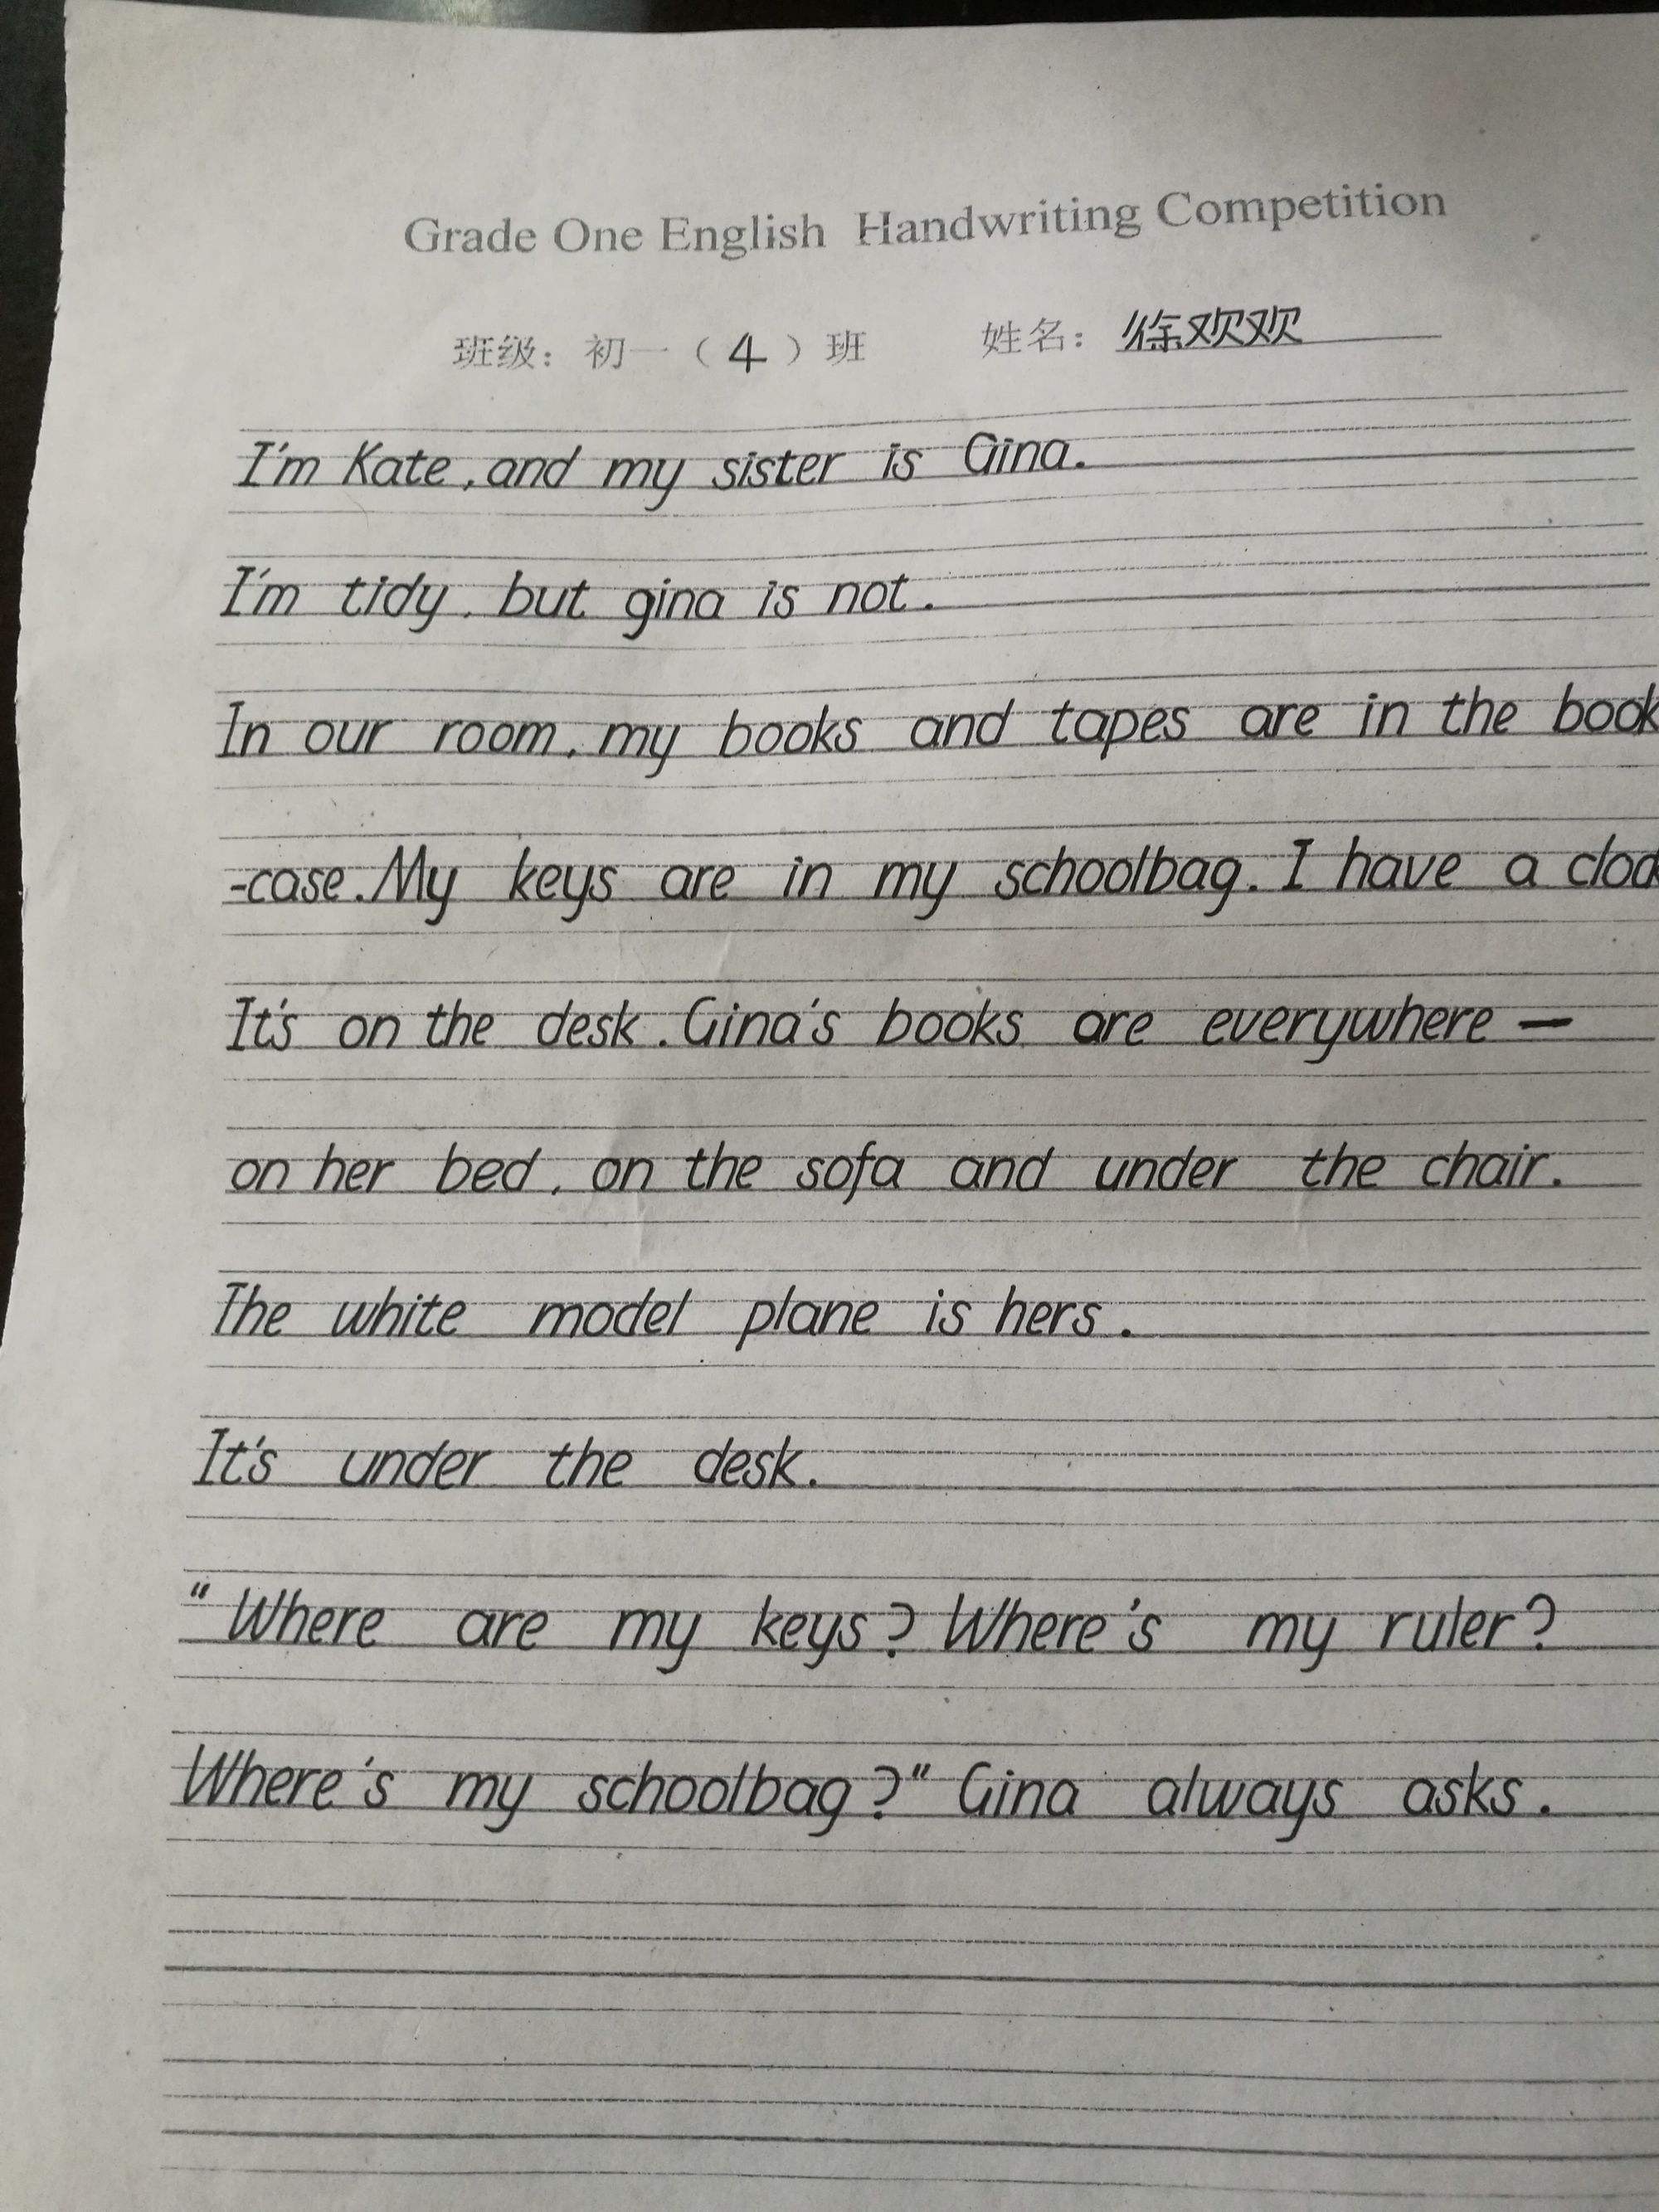 Grade One English Handwriting Competition
班级：初一（4）班 姓名：徐欢欢
I'm Kate, and my sister is Gina.
I'm tidy, but gina is not.
In our room, my books and tapes are in the book
-case. My keys are in my schoolbag. I have a
It's on the desk. Gina's books are everywhere —
on her bed, on the sofa and under the chair.
The white model plane is hers.
It's under the desk.
“Where are my keys? Where's my ruler?
Where's my schoolbag?” Gina always asks.